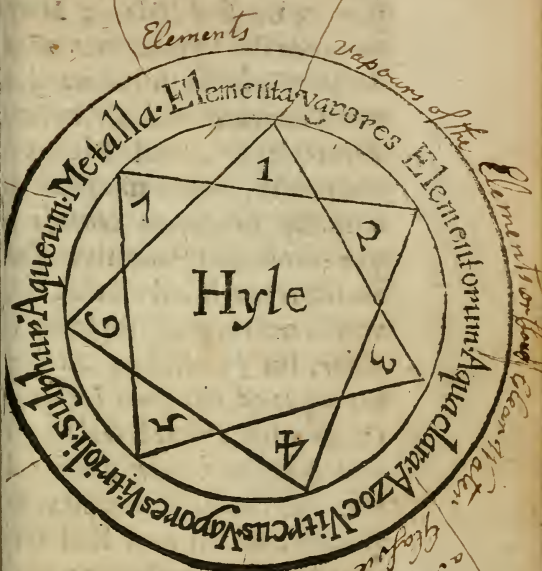 Elements
vapours of the Elements orthus Clean Water
Elementa·vapores Elementorum·Aquaclara·Azoc Vitreus·Vapores Vitrioli·Sulphur Aqueum·Metalla·
1
2
3
4
5
6
7
Hyle
Glasie